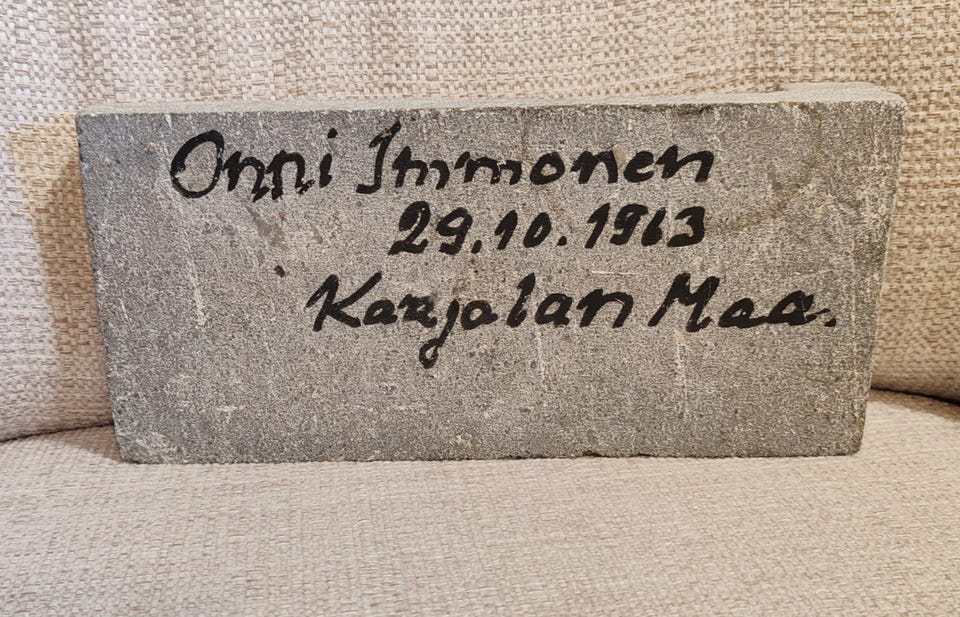 Onni Immonen
29.10.1963
Karjalan Maa.